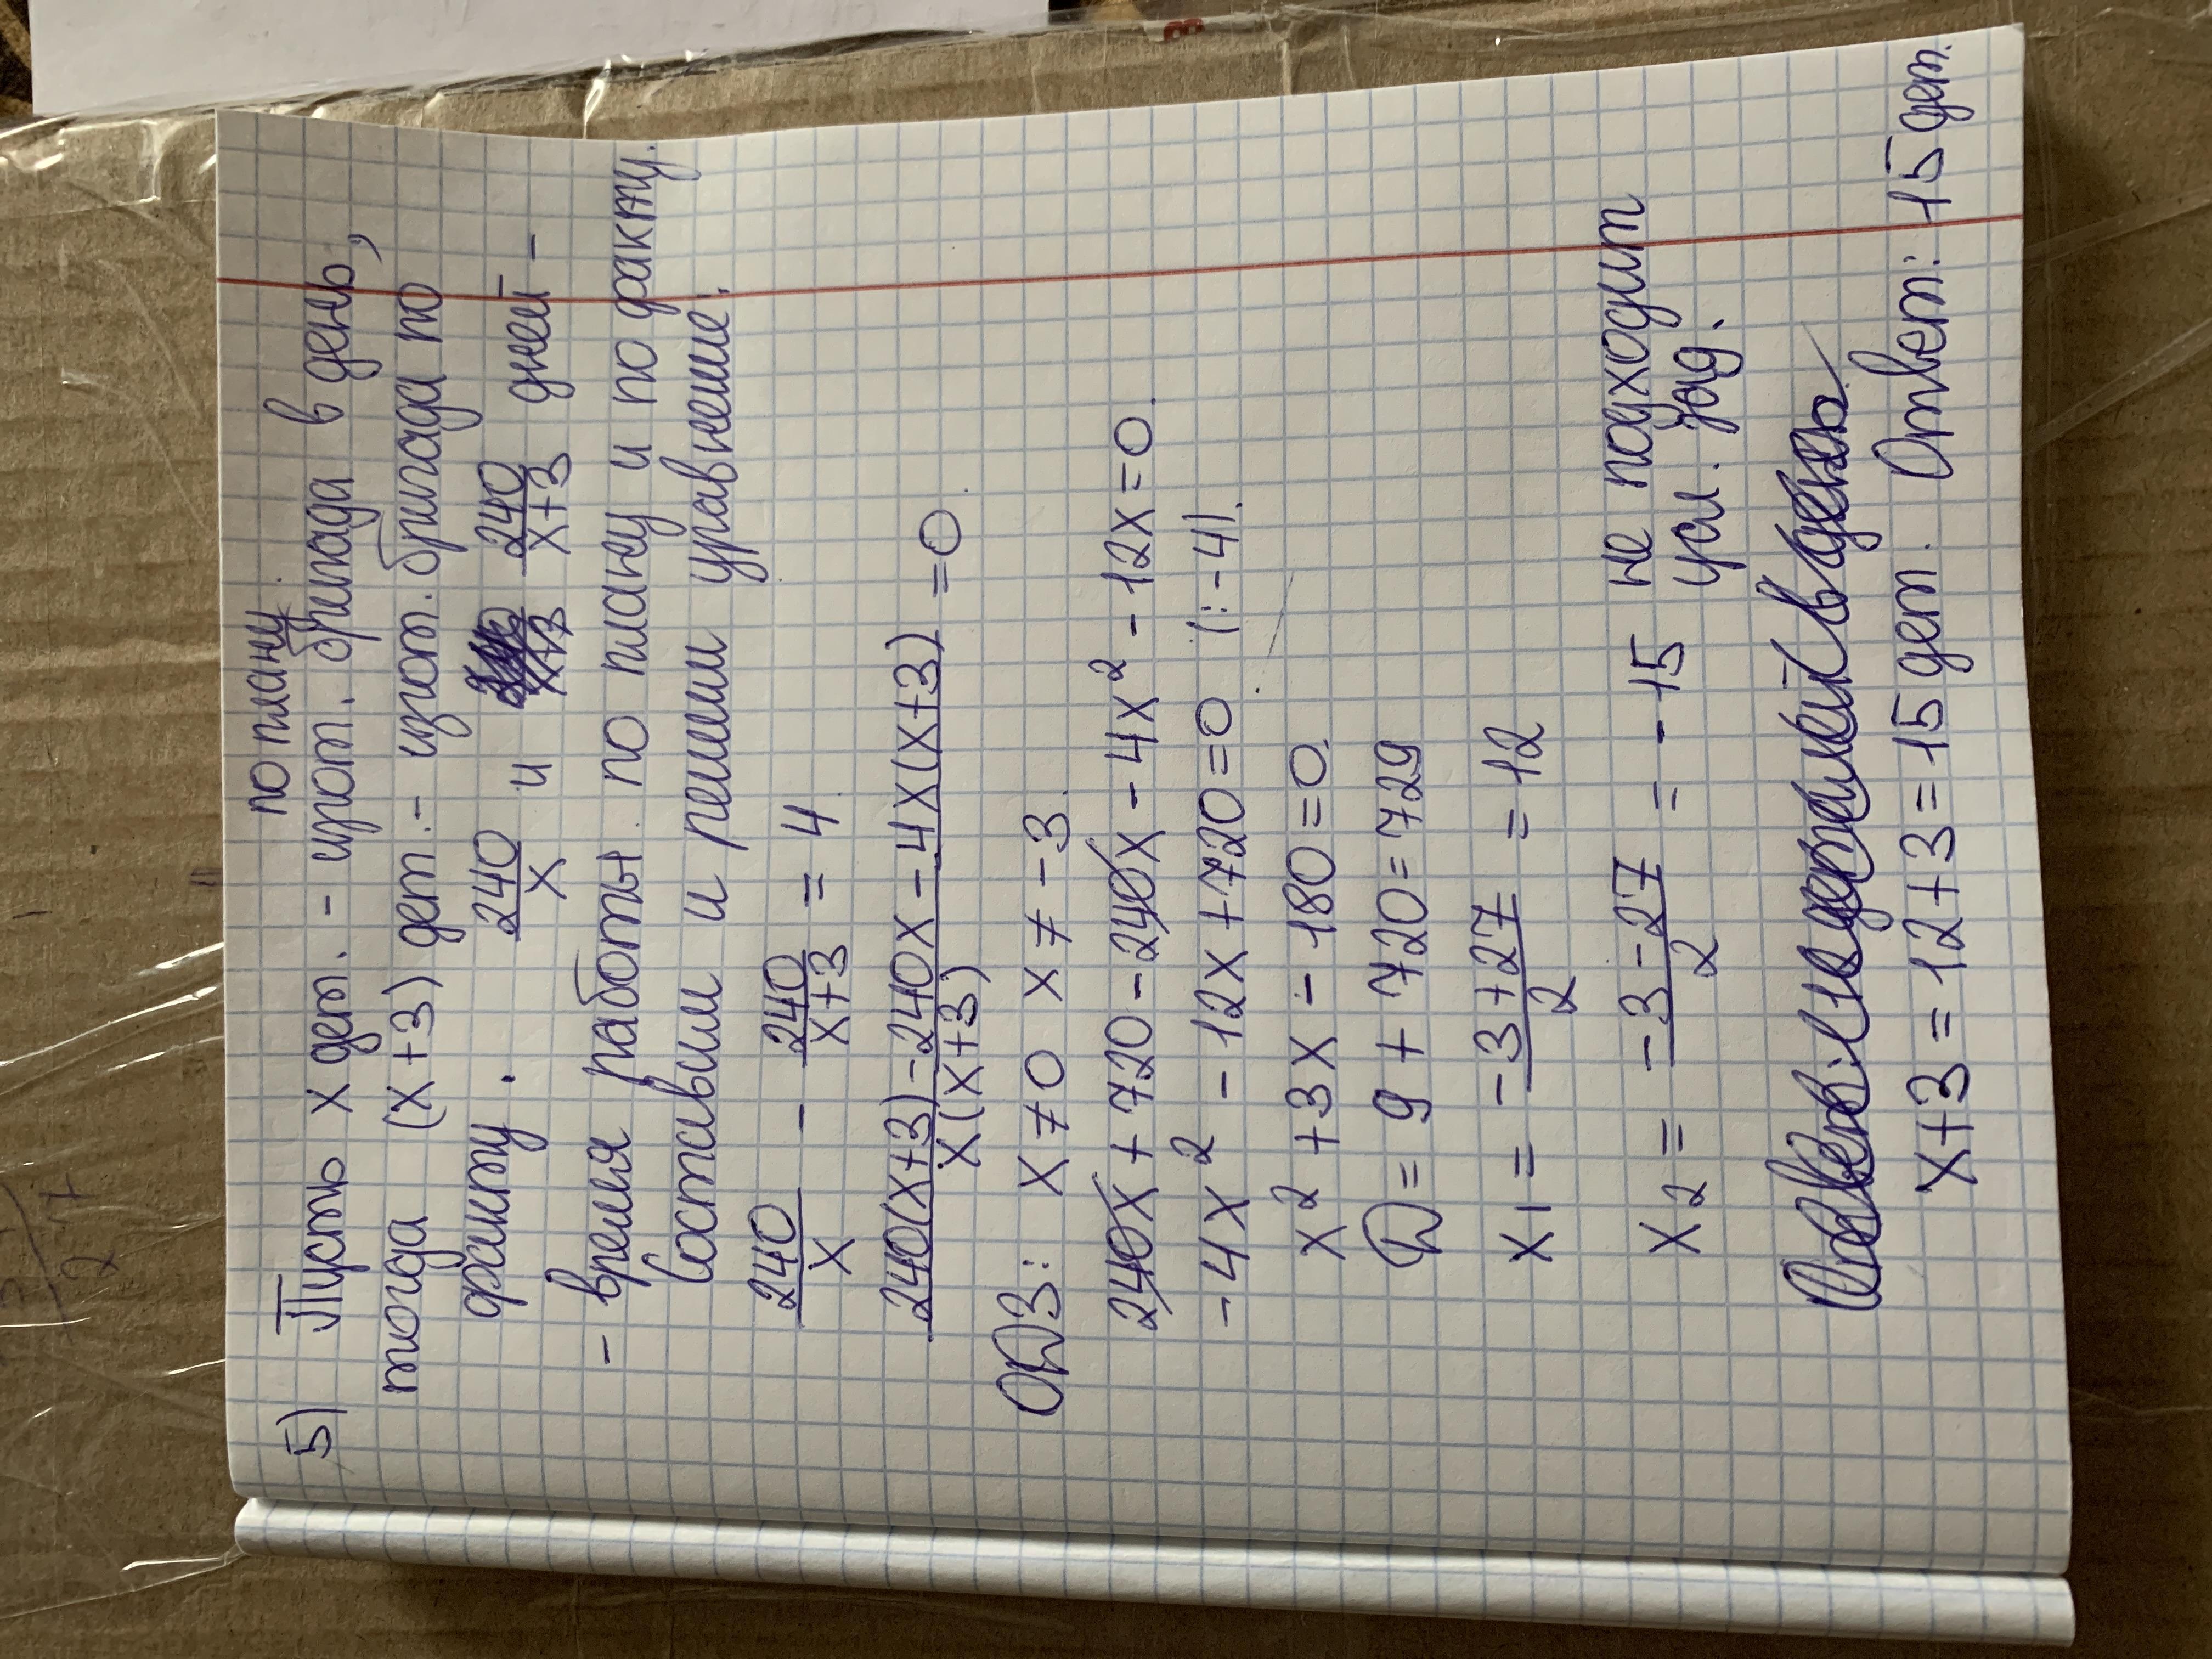 по плану
5) Пусть х дет. - изгот. бригада в день,
тогда (х+3) дет. - изгот. бригада по
факту. 240/х и 240/х+3 дней -
- время работы по плану и по факту.
Составим и решим уравнение:
240/х - 240/х+3 = 4
240(х+3)-240х-4х(х+3)/х(х+3) = 0.
ОДЗ: х≠0 х≠-3.
240х+720-240х-4х²-12х=0.
-4х²-12х+720=0 (:-4).
х²+3х-180=0.
D=9+720=729
х1 = -3+27/2 = 12
х2 = -3-27/2 = -15 не подходит
усл. зад.
х+3=12+3=15 дет. Ответ: 15 дет.